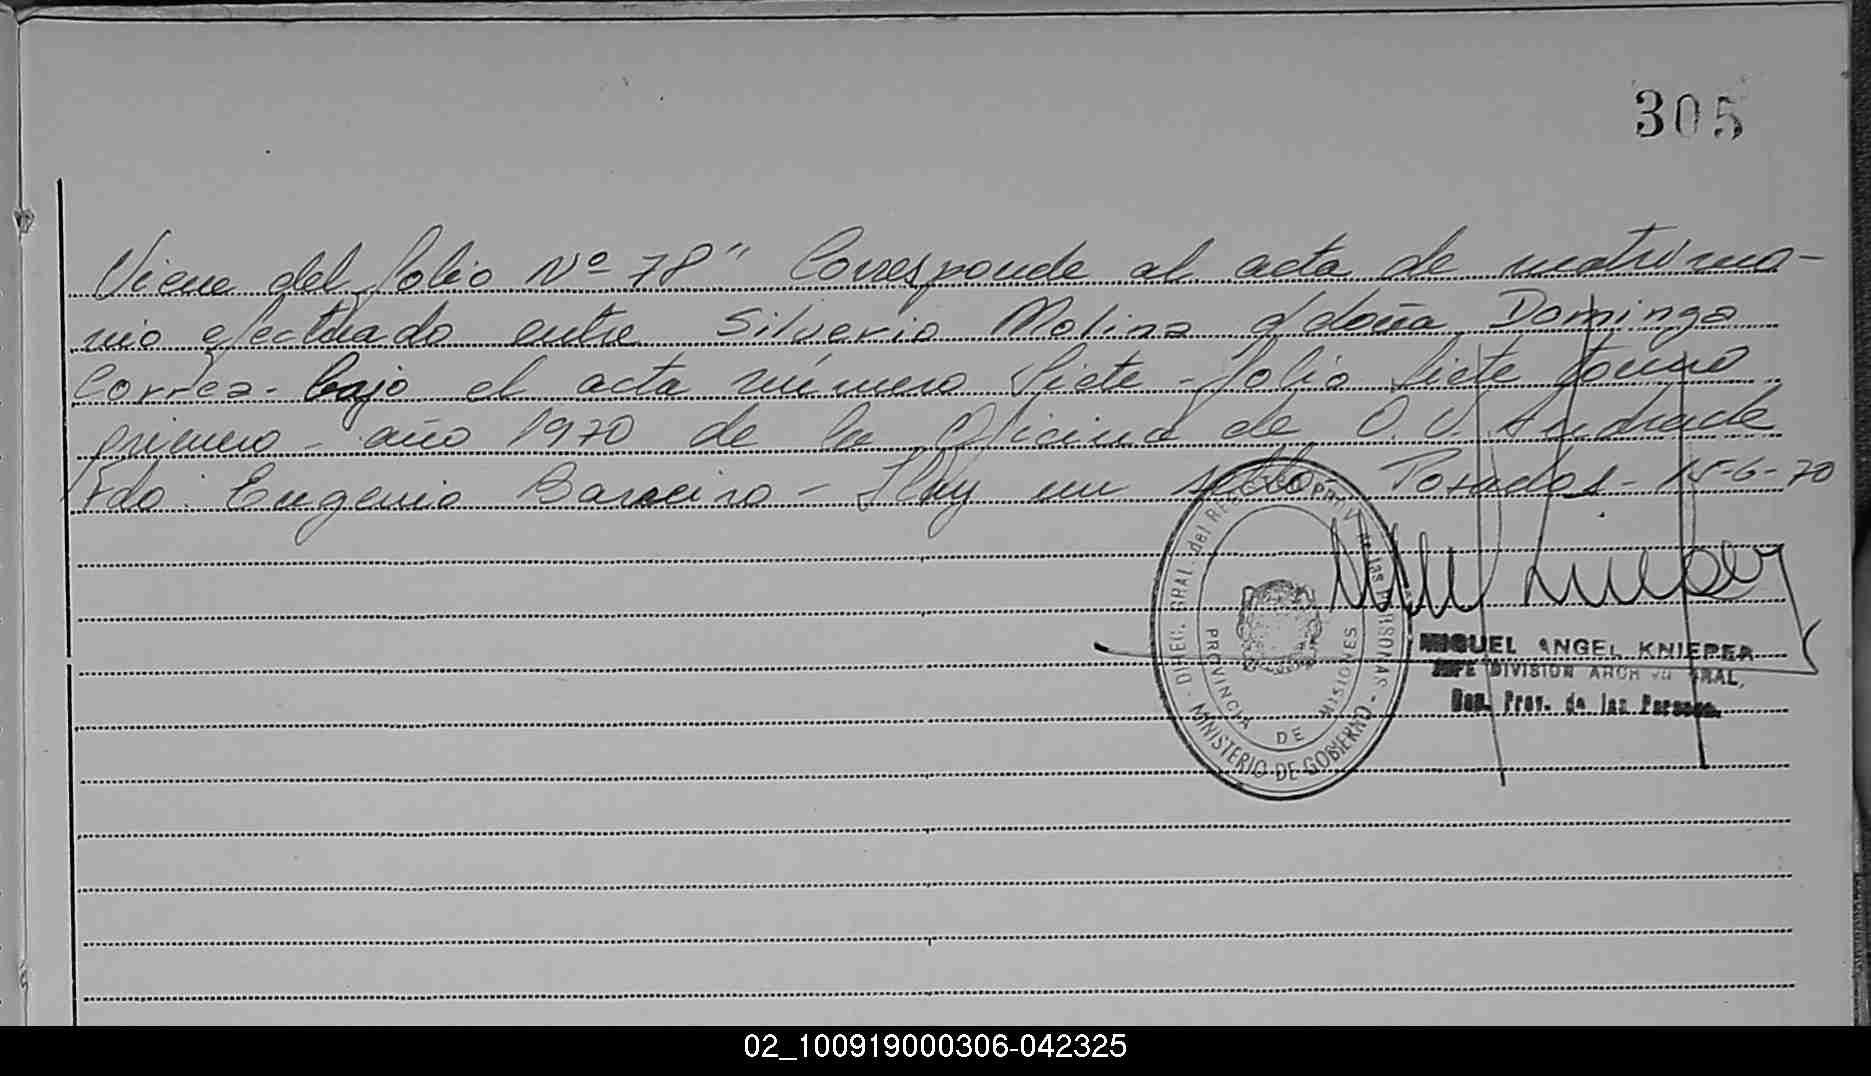 305
Viene del folio Nº 78" Corresponde al acta de matrimo-
nio efectuado entre Silverio Molina y doña Dominga
Correa - bajo el acta número Siete - folio Siete tomo
primero - año 1970 de la Oficina de O. V. Andrade
Fdo: Eugenio Barreiro - Hay un sello - Posadas - 15-6-70
DIREC. GRAL. del REG. PROV. de las PERSONAS
PROVINCIA DE MISIONES
MINISTERIO DE GOBIERNO
MIGUEL ANGEL KNIEPER
JEFE DIVISION ARCH GRAL.
Prov. de las Personas
02_100919000306-042325